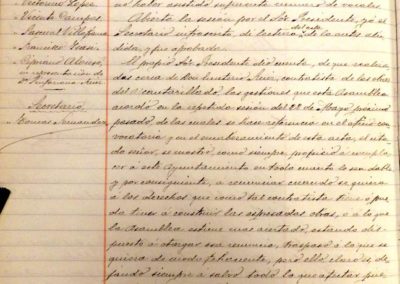 " Victorino Lopez
" Vicente Campos
" Manuel Villafana
" Francisco Ysasi
" Cipriano Alonso,
en representación de
Dª Epifanía Ruiz
Secretario
" Tomas Fernandez
no haber asistido suficiente número de vocales.
Abierta la sesión por el Sor Presidente, yo el
Secretario infrascrito, di lectura del acta an-
dida, y fue aprobada.
El propio Sor Presidente dio cuenta, de que realiza
das cerca de Don Lauterio Ruiz, contratista de las obras
del Alcantarillado las gestiones que esta Asamblea
acordó en la repetida sesión del 22 de Mayo próximo
pasado, de las cuales se hace referencia en el oficio con-
vocatoria y en el encabezamiento de esta acta, el cita-
do señor, se mostró, como siempre, propicio á compla-
cer á este Ayuntamiento en todo cuanto le sea dable
y por consiguiente, á renunciar cuando se quiera
á los derechos que como tal contratista tiene o pue-
da tener á construir las expresadas obras, o á lo que
la Asamblea estime mas acertado, estando dis-
puesto á otorgar esa renuncia, traspaso ó lo que se
quiera de modo fehaciente, pero ello claro es, de
jando siempre á salvo todo lo que afectar pue